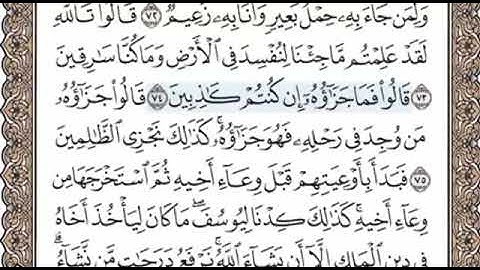 وَلِمَن جَآءَ بِهِۦ حِمْلُ بَعِيرٍ وَأَنَا۠ بِهِۦ زَعِيمٌ ٧٢ قَالُوا۟ تَٱللَّهِ
لَقَدْ عَلِمْتُم مَّا جِئْنَا لِنُفْسِدَ فِى ٱلْأَرْضِ وَمَا كُنَّا سَٰرِقِينَ
٧٣ قَالُوا۟ فَمَا جَزَٰٓؤُهُۥٓ إِن كُنتُمْ كَٰذِبِينَ ٧٤ قَالُوا۟ جَزَٰٓؤُهُۥ
مَن وُجِدَ فِى رَحْلِهِۦ فَهُوَ جَزَٰٓؤُهُۥ ۚ كَذَٰلِكَ نَجْزِى ٱلظَّٰلِمِينَ
٧٥ فَبَدَأَ بِأَوْعِيَتِهِمْ قَبْلَ وِعَآءِ أَخِيهِ ثُمَّ ٱسْتَخْرَجَهَا مِن
وِعَآءِ أَخِيهِ ۚ كَذَٰلِكَ كِدْنَا لِيُوسُفَ ۖ مَا كَانَ لِيَأْخُذَ أَخَاهُ
فِى دِينِ ٱلْمَلِكِ إِلَّآ أَن يَشَآءَ ٱللَّهُ ۚ نَرْفَعُ دَرَجَٰتٍ مَّن نَّشَآءُ ۗ